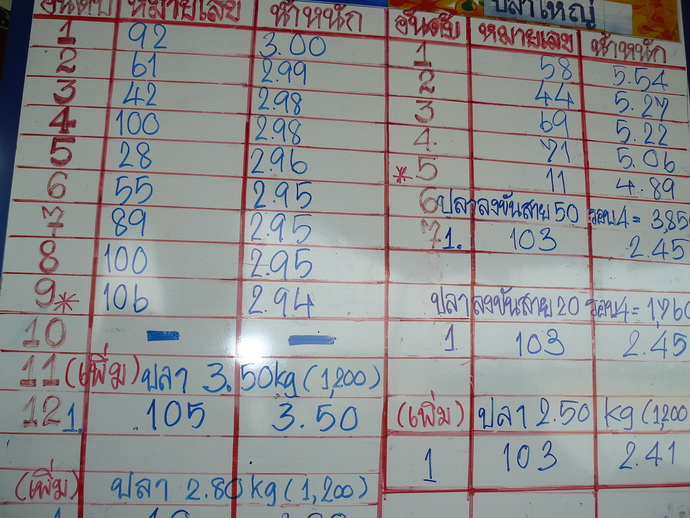 ปลาใหญ่
อันดับ หมายเลข น้ำหนัก
1 92 3.00
2 61 2.99
3 42 2.98
4 100 2.98
5 28 2.96
6 55 2.95
7 89 2.95
8 100 2.95
9* 106 2.94
10 - -
11 (เพิ่ม) ปลา 3.50kg (1,200)
12 1. 105 3.50
(เพิ่ม) ปลา 2.80kg (1,200)
อันดับ หมายเลข น้ำหนัก
1 58 5.54
2 44 5.27
3 69 5.22
4 71 5.06
*5 11 4.89
6 ปลาลงขันสาย 50 รอบ4 = 3,85
7 1. 103 2.45
ปลาลงขันสาย 20 รอบ4 = 1,760
1 103 2.45
(เพิ่ม) ปลา 2.50 kg (1,200
1 103 2.41